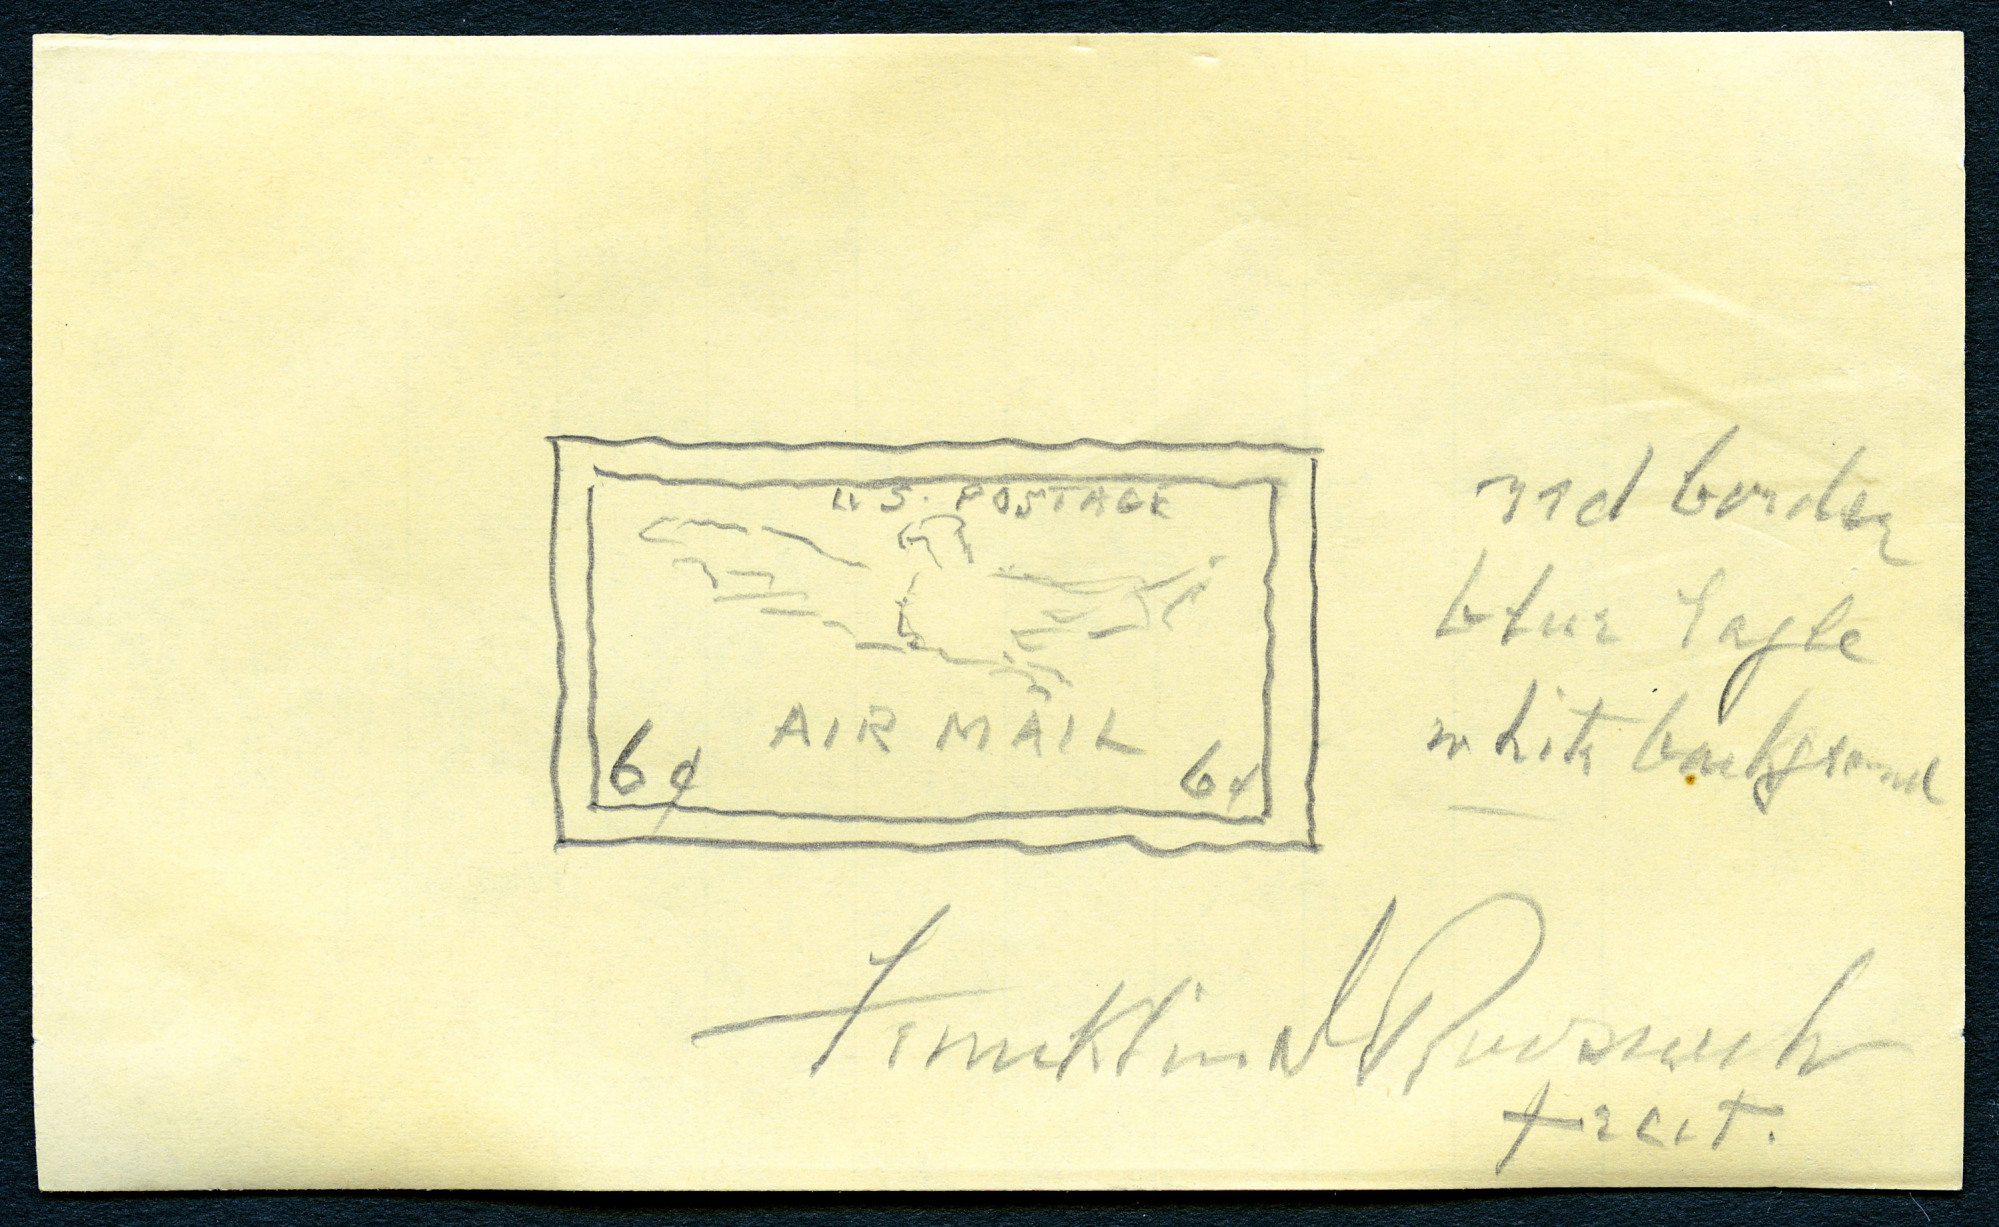 U.S. POSTAGE
AIR MAIL
6¢ 6¢
red border
blue Eagle
white background
Franklin D Roosevelt
fecit.